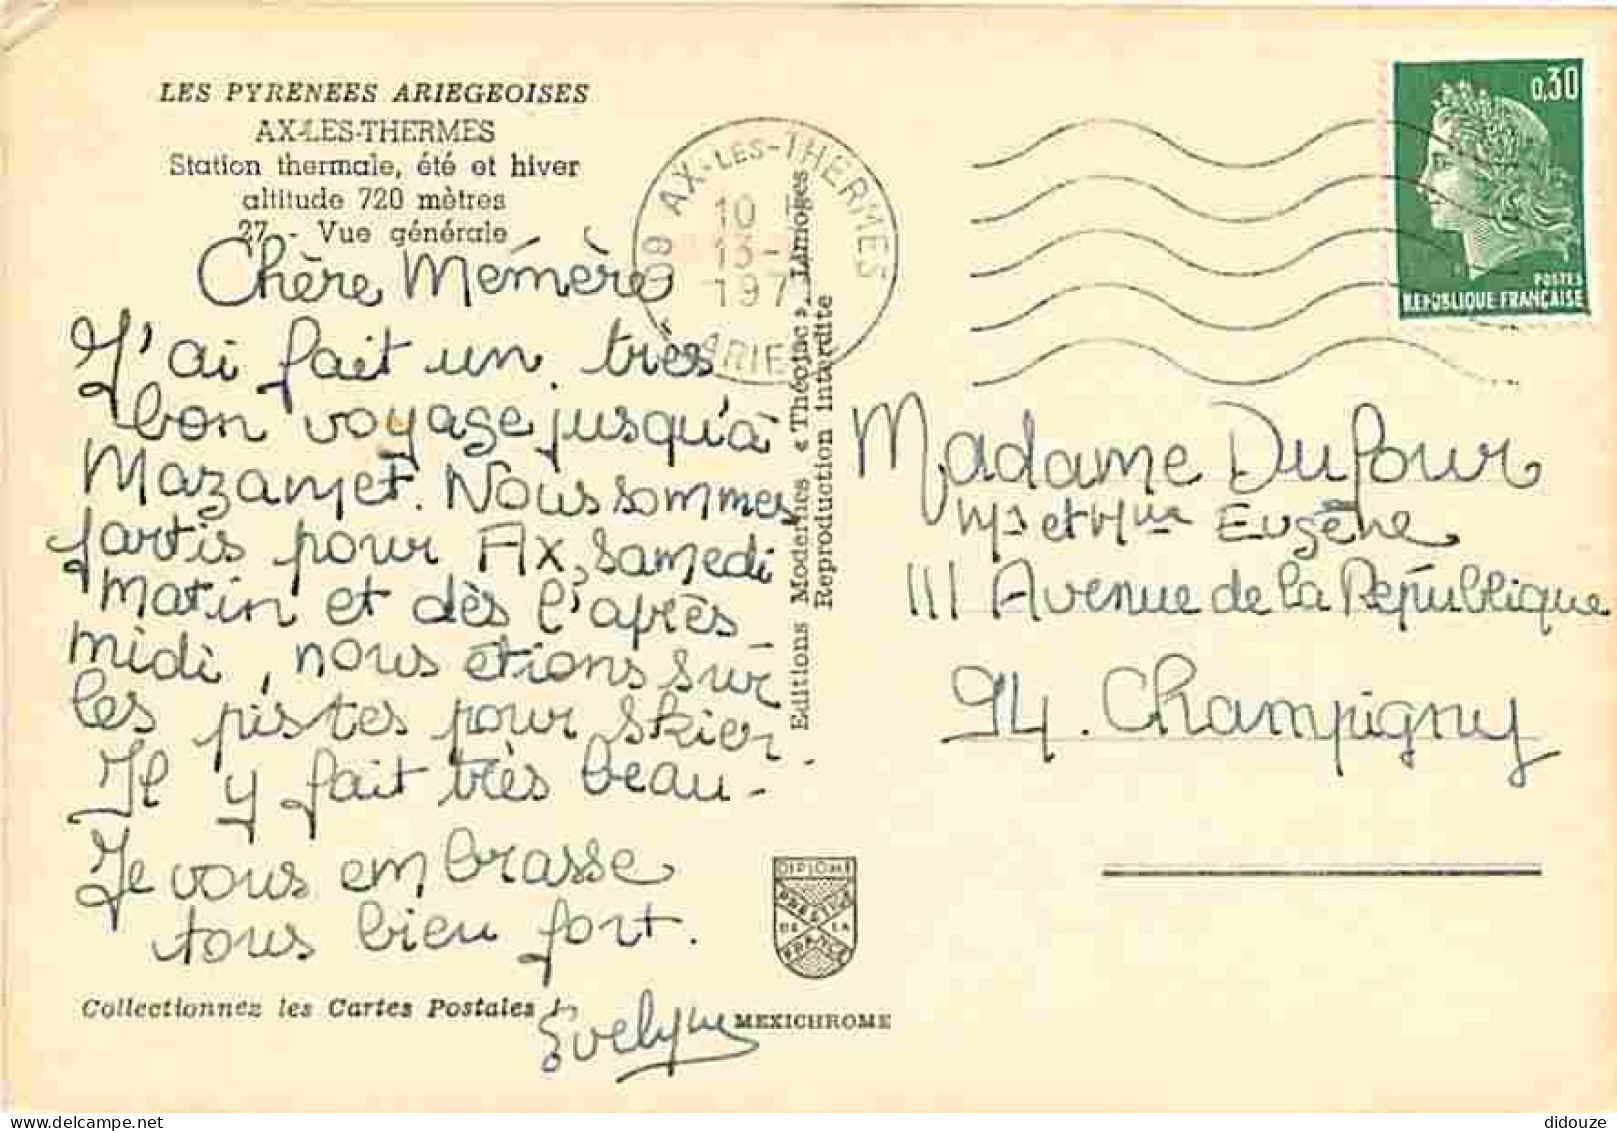 LES PYRENEES ARIEGEOISES
AX-LES-THERMES
Station thermale, été et hiver
altitude 720 mètres
27 - Vue générale
Chère Mémère
J'ai fait un très
bon voyage jusqu'à
Mazamet. Nous sommes
partis pour Ax, samedi
matin et dès l'après
midi, nous étions sur
les pistes pour skier.
Il y fait très beau-
Je vous embrasse
tous bien fort.
Evelyne
Collectionnez les Cartes Postales
Editions Modernes « Théojac », Limoges
Reproduction interdite
DIPLOME
PRESTIGE
DE LA
FRANCE
MEXICHROME
09 AX-LES-THERMES
10
13-
197
ARIE
0,30
POSTES
REPUBLIQUE FRANÇAISE
Madame Dufour
Mr et Mme Eugène
111 Avenue de la République
94. Champigny
delcampe.net
didouze